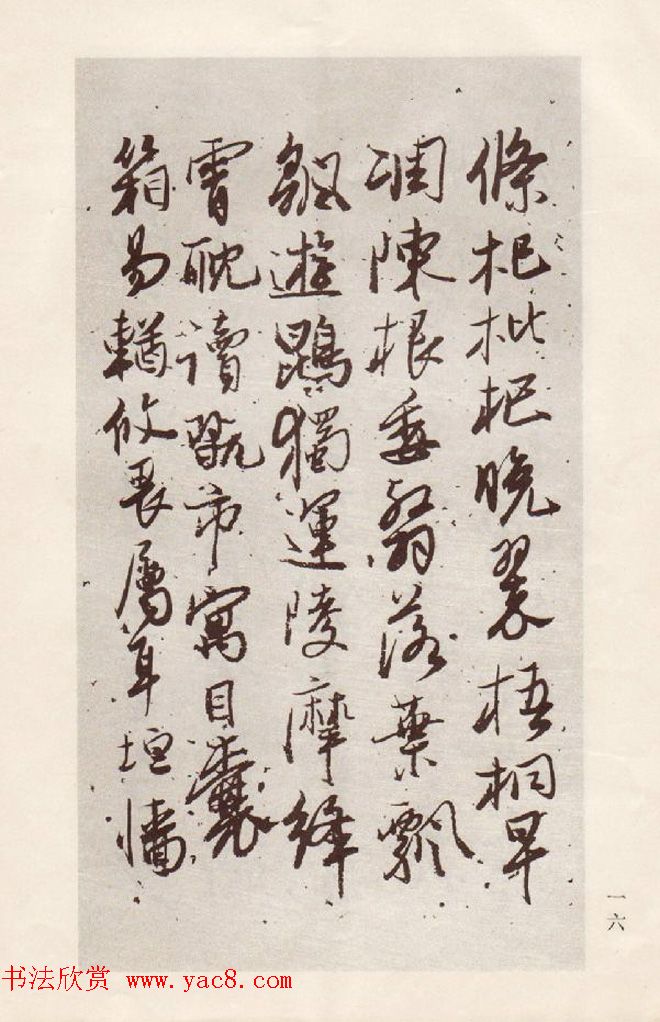 條杷枇杷晚翠梧桐早
凋陳根委翳落葉飄
颻遊鵾獨運陵摩絳
霄耽讀翫市寓目囊
箱易輶攸畏屬耳垣牆
一六
书法欣赏 www.yac8.com